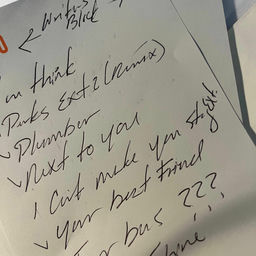 Writers
Block
think
(Remix)
Plumber
Next to you
Can't make you stay
Your best friend
bus ???